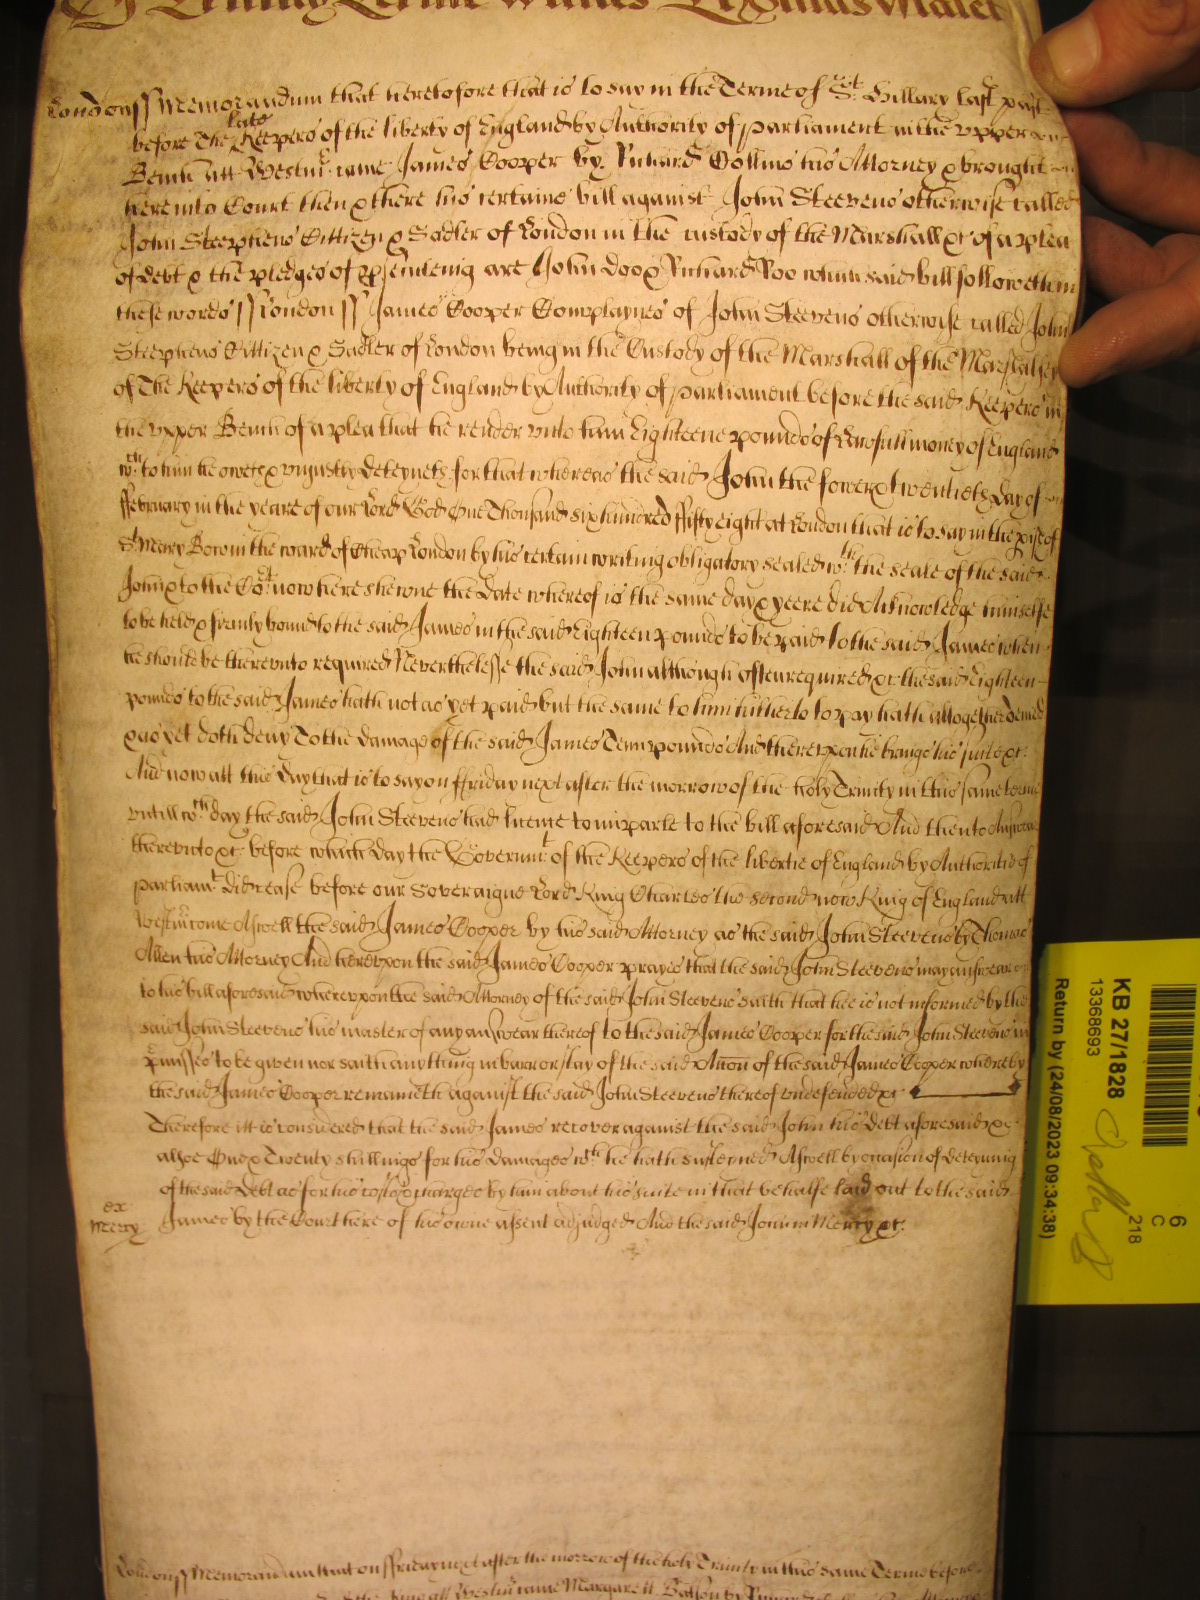 Trinity Terme Willms
London ss Memorandum that heretofore that is to say in the Terme of St. Hillary last past
before The late Keepers of the liberty of England by Authority of parliament in the upper
Bench att Westmr. came James Cooper by Richard Collins his Attorney & brought
here into Court then & there his certaine bill against John Steevens otherwise called
John Steephens Cittizen & Sadler of London in the custody of the Marshall &c of a plea
of debt & the pledges of prsecuteing are John Doo & Richard Roo which said bill followeth in
these words ss London ss James Cooper Complaynes of John Steevens otherwise called John
Steephens Cittizen & Sadler of London being in the Custody of the Marshall of the Marshalsey
of The Keepers of the liberty of England by Authority of parliament before the said Keepers in
the upper Bench of a plea that he render unto him Eighteene pounds of Lawfull money of England
wch. to him he owes & uniustly deteyneth for that whereas the said John the fower & twentieth day of
ffebruary in the yeare of our Lord God One Thousand six hundred ffifty eight at London that is to say in the pish of
St Mary Bow in the ward of Cheap London by his certain writing obligatory sealed wth. the seale of the said
John & to the Cort now here shewne the date whereof is the same day & yeere did Acknowledge himselfe
to be held & firmly bound to the said James in the said Eighteen pounds to be paid to the said James when
he should be thereunto required Neverthelesse the said John although often required &c the said Eighteen
pounds to the said James hath not as yet paid but the same to him hitherto to pay hath altogether denied
& as yet doth deny To the damage of the said James Tenn pounds And thereupon he brings his suite &c.
And now att this day that is to say on ffriday next after the morrow of the holy Trinity in this same terme
untill wch. day the said John Steevens had licence to imparle to the bill aforesaid And then to Answear
thereunto &c. before which day the Governmt. of the Keepers of the libertie of England by Authoritie of
parliamt. did cease before our Soveraigne Lord King Charles the second now King of England att
Westmr come Aswell the said James Cooper by his said Attorney as the said John Steevens by Thomas
Allen his Attorney And hereupon the said James Cooper prayes that the said John Steevens may answear
to his bill aforesaid whereupon the said Attorney of the said John Steevens saith that hee is not informed by the
said John Steevens his master of any answear thereof to the said James Cooper for the said John Steevens in
prmisses to be given nor saith any thing in barr or stay of the said Accon of the said James Cooper whereby
the said James Cooper remaineth against the said John Steevens thereof undefended &c
Therefore itt is considered that the said James recover against the said John his debt aforesaid &c
alsoe One & Twenty shillings for his damages wch. he hath susteyned Aswell by occasion of deteyning
of the said debt as for his costs & charges by him about his suite in that behalfe laid out to the said
James by the Court here of his owne assent adjudged And the said John in Mercy &c.
ex
Mercy
London ss Memorandum that on ffriday next after the morrow of the holy Trinity in this same Terme before
the King att Westmr came Margarett
KB 27/1828
13368693
Return by (24/08/2023 09:34:38)
218
C
6